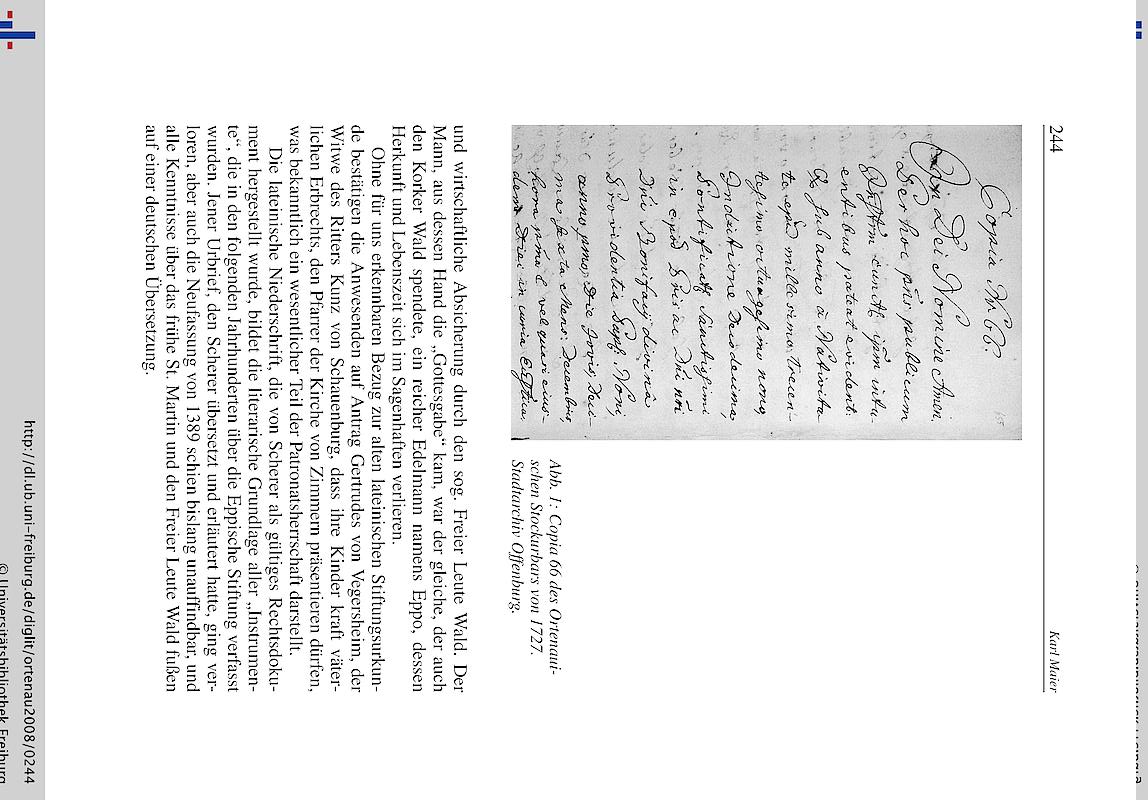 244
Karl Maier
Copia N. 66.
Dei Nomine Amen.
Per hoc publicum
pateat evident.
sub anno à Nativita
millesimo, trecen-
octuagesimo nono,
Indictione
Dni Bonifacij divinâ
Providentiâ Papae Noni,
anno primo, Die Jovis,
sexta Mens: Decembris
hora vel quasi eius-
dem Diei in curia
Abb. 1: Copia 66 des Ortenaui-
schen Stockurbars von 1727.
Stadtarchiv Offenburg.
und wirtschaftliche Absicherung durch den sog. Freier Leute Wald. Der
Mann, aus dessen Hand die „Gottesgabe“ kam, war der gleiche, der auch
den Korker Wald spendete, ein reicher Edelmann namens Eppo, dessen
Herkunft und Lebenszeit sich im Sagenhaften verlieren.
Ohne für uns erkennbaren Bezug zur alten lateinischen Stiftungsurkun-
de bestätigen die Anwesenden auf Antrag Gertrudes von Vegersheim, der
Witwe des Ritters Kunz von Schauenburg, dass ihre Kinder kraft väter-
lichen Erbrechts, den Pfarrer der Kirche von Zimmern präsentieren dürfen,
was bekanntlich ein wesentlicher Teil der Patronatsherrschaft darstellt.
Die lateinische Niederschrift, die von Scherer als gültiges Rechtsdoku-
ment hergestellt wurde, bildet die literarische Grundlage aller „Instrumen-
te“, die in den folgenden Jahrhunderten über die Eppische Stiftung verfasst
wurden. Jener Urbrief, den Scherer übersetzt und erläutert hatte, ging ver-
loren, aber auch die Neufassung von 1389 schien bislang unauffindbar, und
alle Kenntnisse über das frühe St. Martin und den Freier Leute Wald fußen
auf einer deutschen Übersetzung.
http://dl.ub.uni-freiburg.de/diglit/ortenau2008/0244
© Universitätsbibliothek Freiburg